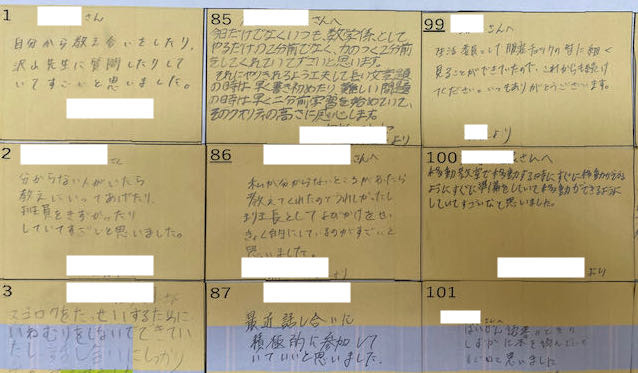 1
さん
自分から教え合いをしたり、
沢山先生に質問したりして
いてすごいと思いました。
2
さん
分からない人がいたら
教えにいってあげたり、
班員を
していてすごいと思いました。
3
スゴロクをたっせいするために
いねむりをしないでできてい
85
さんへ
今日だけでなくいつも、数学係として
やるだけの2分前でなく、力のつく2分前
をしてくれていてすごいと思います。
それにやりきれるよう工夫して長い文章題
の時は早く書き初めたり、難しい問題
の時は早く二分前学習を始めていて、
そのクオリティの高さに感心します。
より
86
さんへ
私が分からないところがあったら
教えてくれたのでうれしかったし
班長としてよびかけをせっ
きょく的にしているのがすごいと
思いました。
より
87
最近話し合いに
積極的に参加して
いていいと思いました。
99
さんへ
生活委員として服装チェックの時に細く
見ることができていたので、これからも続けて
ください。いつもありがとうございます。
より
100
さんへ
移動教室で移動する時にすぐに移動ができる
ようにすぐに準備をしていて移動ができるように
していてすごいなと思いました。
より
101
さんへ
しずかに本を読んでいて
すごいと思いました